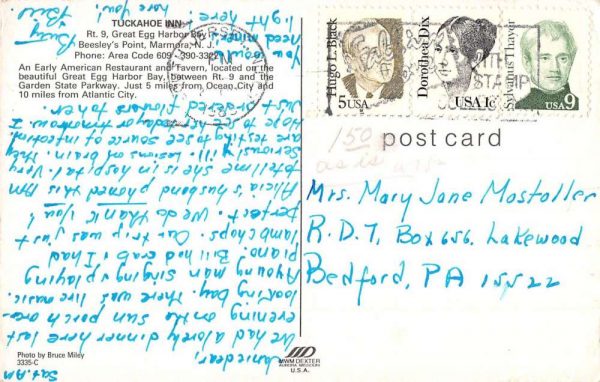 TUCKAHOE INN
Rt. 9, Great Egg Harbor Bay
Beesley's Point, Marmora, N. J.
Phone: Area Code 609 - 390-3322
An Early American Restaurant and Tavern, located on the
beautiful Great Egg Harbor Bay, between Rt. 9 and the
Garden State Parkway. Just 5 miles from Ocean City and
10 miles from Atlantic City.
Hugo L. Black
5 USA
Dorothea Dix
USA 1c
Sylvanus Thayer
USA 9
STAMP
1985
150
as is
post card
Mrs. Mary Jane Mostoller
R.D. 7, Box 656, Lakewood
Bedford, PA 15522
Sat. AM
Janie dear,
We had a lovely dinner here last
evening on the sun porch over-
looking bay. There was live music.
A young man singing & playing
piano. Bill had crab & I had
lamb chops. Our trip was just
perfect. We do thank you!
Alicia's husband phoned this AM
to tell me she is in hospital. Very
seriously ill. Lesions on brain. They
are testing to see source of infection.
Hope to see her today or tomorrow. I
just ordered flowers to her.
You would
need miner's
light here!
Bill
Photo by Bruce Miley
3335-C
MWM DEXTER
AURORA MISSOURI
U.S.A.